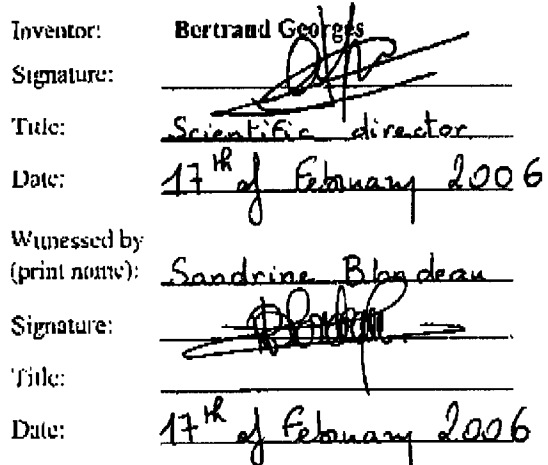 Inventor: Bertrand Georges
Signature:
Title: Scientific director
Date: 17th of February 2006
Witnessed by
(print name): Sandrine Blondeau
Signature:
Title:
Date: 17th of February 2006